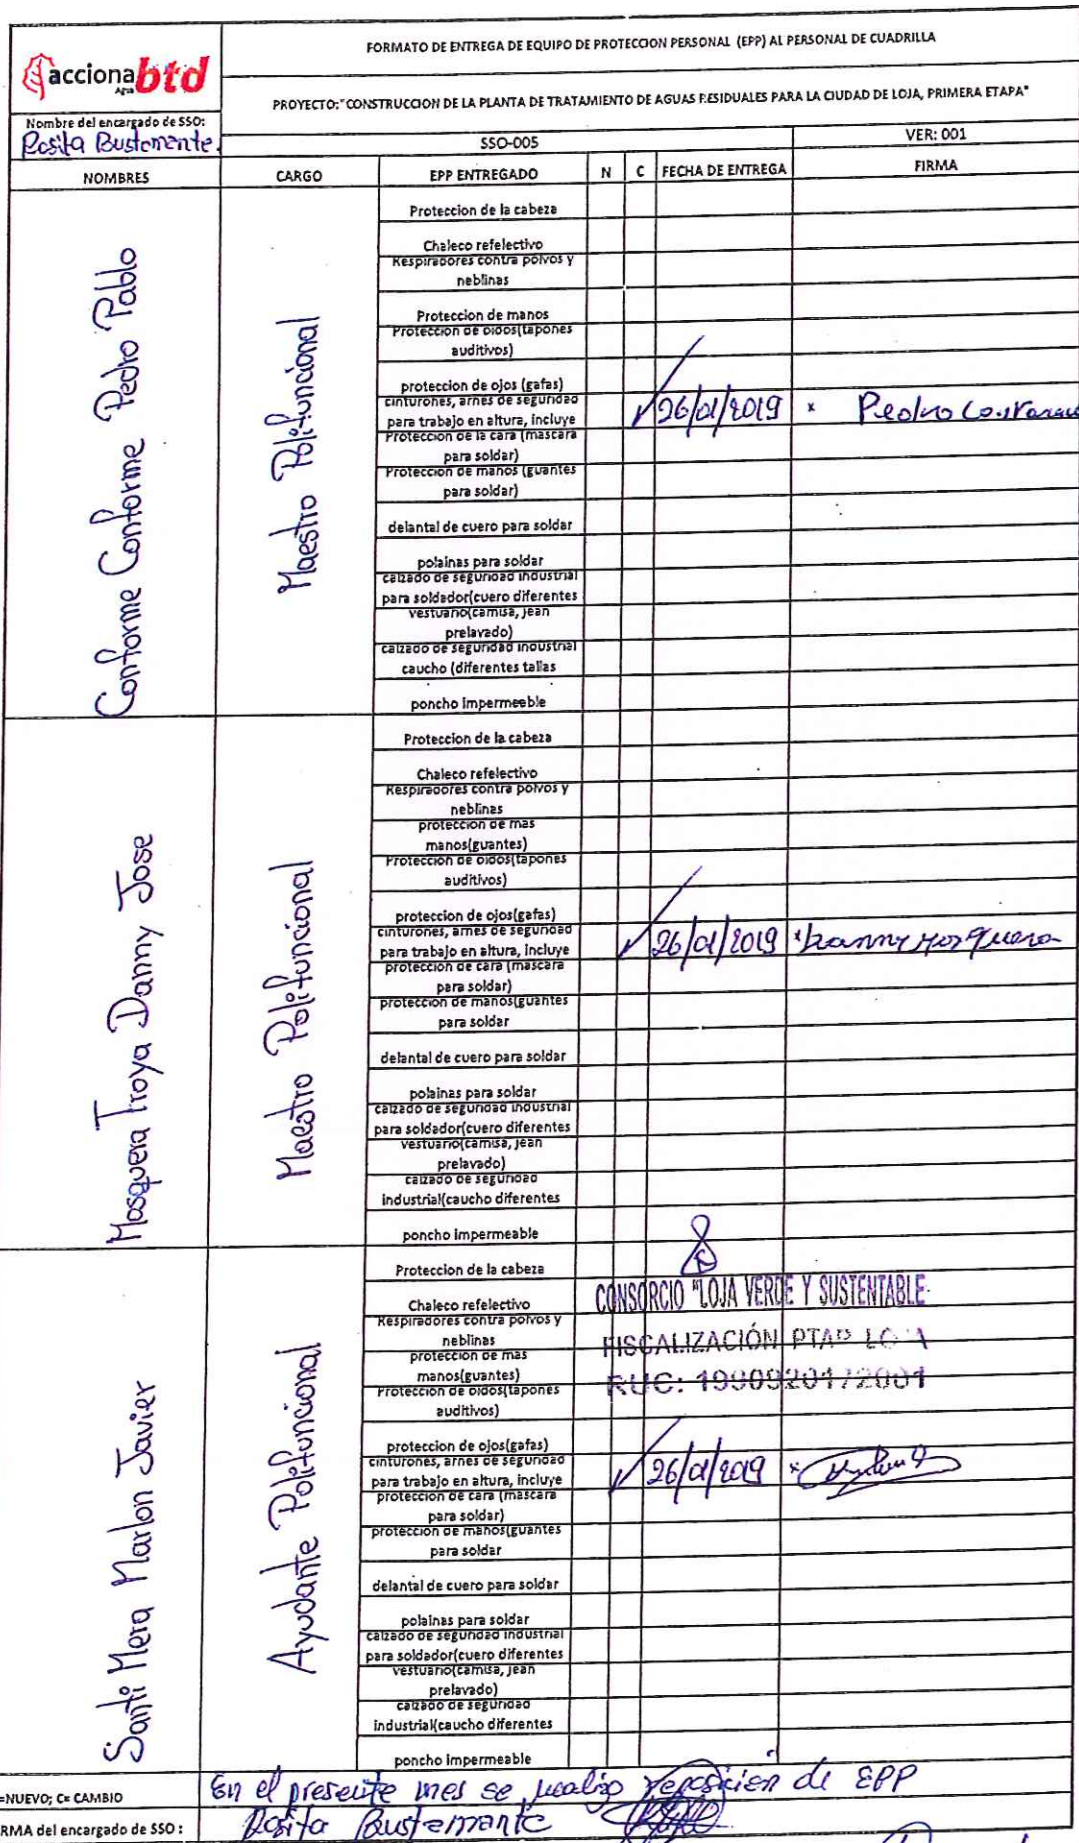 acciona btd
Agua
FORMATO DE ENTREGA DE EQUIPO DE PROTECCION PERSONAL (EPP) AL PERSONAL DE CUADRILLA
PROYECTO:"CONSTRUCCION DE LA PLANTA DE TRATAMIENTO DE AGUAS RESIDUALES PARA LA CIUDAD DE LOJA, PRIMERA ETAPA"
Nombre del encargado de SSO:
Rosita Bustamante.
SSO-005
VER: 001
NOMBRES CARGO EPP ENTREGADO N C FECHA DE ENTREGA FIRMA
Conforme Conforme Pedro Pablo
Maestro Polifuncional
Proteccion de la cabeza
Chaleco refelectivo
Respiradores contra polvos y
neblinas
Proteccion de manos
Proteccion de oidos(tapones
auditivos)
proteccion de ojos (gafas)
cinturones, arnes de seguridad
para trabajo en altura, incluye ✓ 26/01/2019 x Pedro
Proteccion de la cara (mascara
para soldar)
Proteccion de manos (guantes
para soldar)
delantal de cuero para soldar
polainas para soldar
calzado de seguridad industrial
para soldador(cuero diferentes
vestuario(camisa, jean
prelavado)
calzado de seguridad industrial
caucho (diferentes tallas
poncho impermeable
Mosquera Troya Danny Jose
Maestro Polifuncional
Proteccion de la cabeza
Chaleco refelectivo
Respiradores contra polvos y
neblinas
proteccion de mas
manos(guantes)
Proteccion de oidos(tapones
auditivos)
proteccion de ojos(gafas)
cinturones, arnes de seguridad
para trabajo en altura, incluye ✓ 26/01/2019 x Danny Mosquera
proteccion de cara (mascara
para soldar)
proteccion de manos(guantes
para soldar
delantal de cuero para soldar
polainas para soldar
calzado de seguridad industrial
para soldador(cuero diferentes
vestuario(camisa, jean
prelavado)
calzado de seguridad
industrial(caucho diferentes
poncho impermeable
Santi Mera Marlon Javier
Ayudante Polifuncional
Proteccion de la cabeza
Chaleco refelectivo
CONSORCIO "LOJA VERDE Y SUSTENTABLE
Respiradores contra polvos y
neblinas
FISCALIZACIÓN PTAR LOJA
proteccion de mas
manos(guantes)
RUC: 1990920172001
Proteccion de oidos(tapones
auditivos)
proteccion de ojos(gafas)
cinturones, arnes de seguridad
para trabajo en altura, incluye ✓ 26/01/2019 x
proteccion de cara (mascara
para soldar)
proteccion de manos(guantes
para soldar
delantal de cuero para soldar
polainas para soldar
calzado de seguridad industrial
para soldador(cuero diferentes
vestuario(camisa, jean
prelavado)
calzado de seguridad
industrial(caucho diferentes
poncho impermeable
=NUEVO; C= CAMBIO
En el presente mes se realizo reposicion de EPP
RMA del encargado de SSO :
Rosita Bustamante